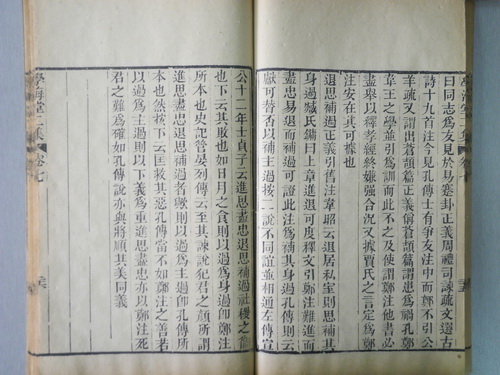 曰同志為友見於易蹇卦正義周禮司諫疏文選古
詩十九首注今見孔傳士有爭友注中而鄭不引公
羊疏又謂出蒼頡篇正義偁蒼頡篇謂患為禍孔鄭
韋王之學並訓而此不之及使謂鄭注他書必
盡舉以釋孝經終嫌強合況又據賈氏之言定為鄭
注安在其可據也
退思補過正義引舊注韋昭云退居私室則思補其
身過臧氏鏞曰上章進退可度釋文引鄭注難進而
盡忠易退而補過可證此注為補其身過孔傳則云
獻可替否以補主過按二說不同誼並相通左傳宣
公十二年士貞子云進思盡忠退思補過社稷之衛
也下云其敗也如日月之食則以過為身過即鄭注
所本也史記管晏列傳云至其諫說犯君之顏所謂
進思盡忠退思補過者歟則以過為主過即孔傳所
本也然按下云匡救其惡孔傳當不如鄭注之善若
以過為主過則以下義為重進思盡忠亦以鄭注死
君之難為確如孔傳說亦與將順其美同義
學海堂二集 卷七